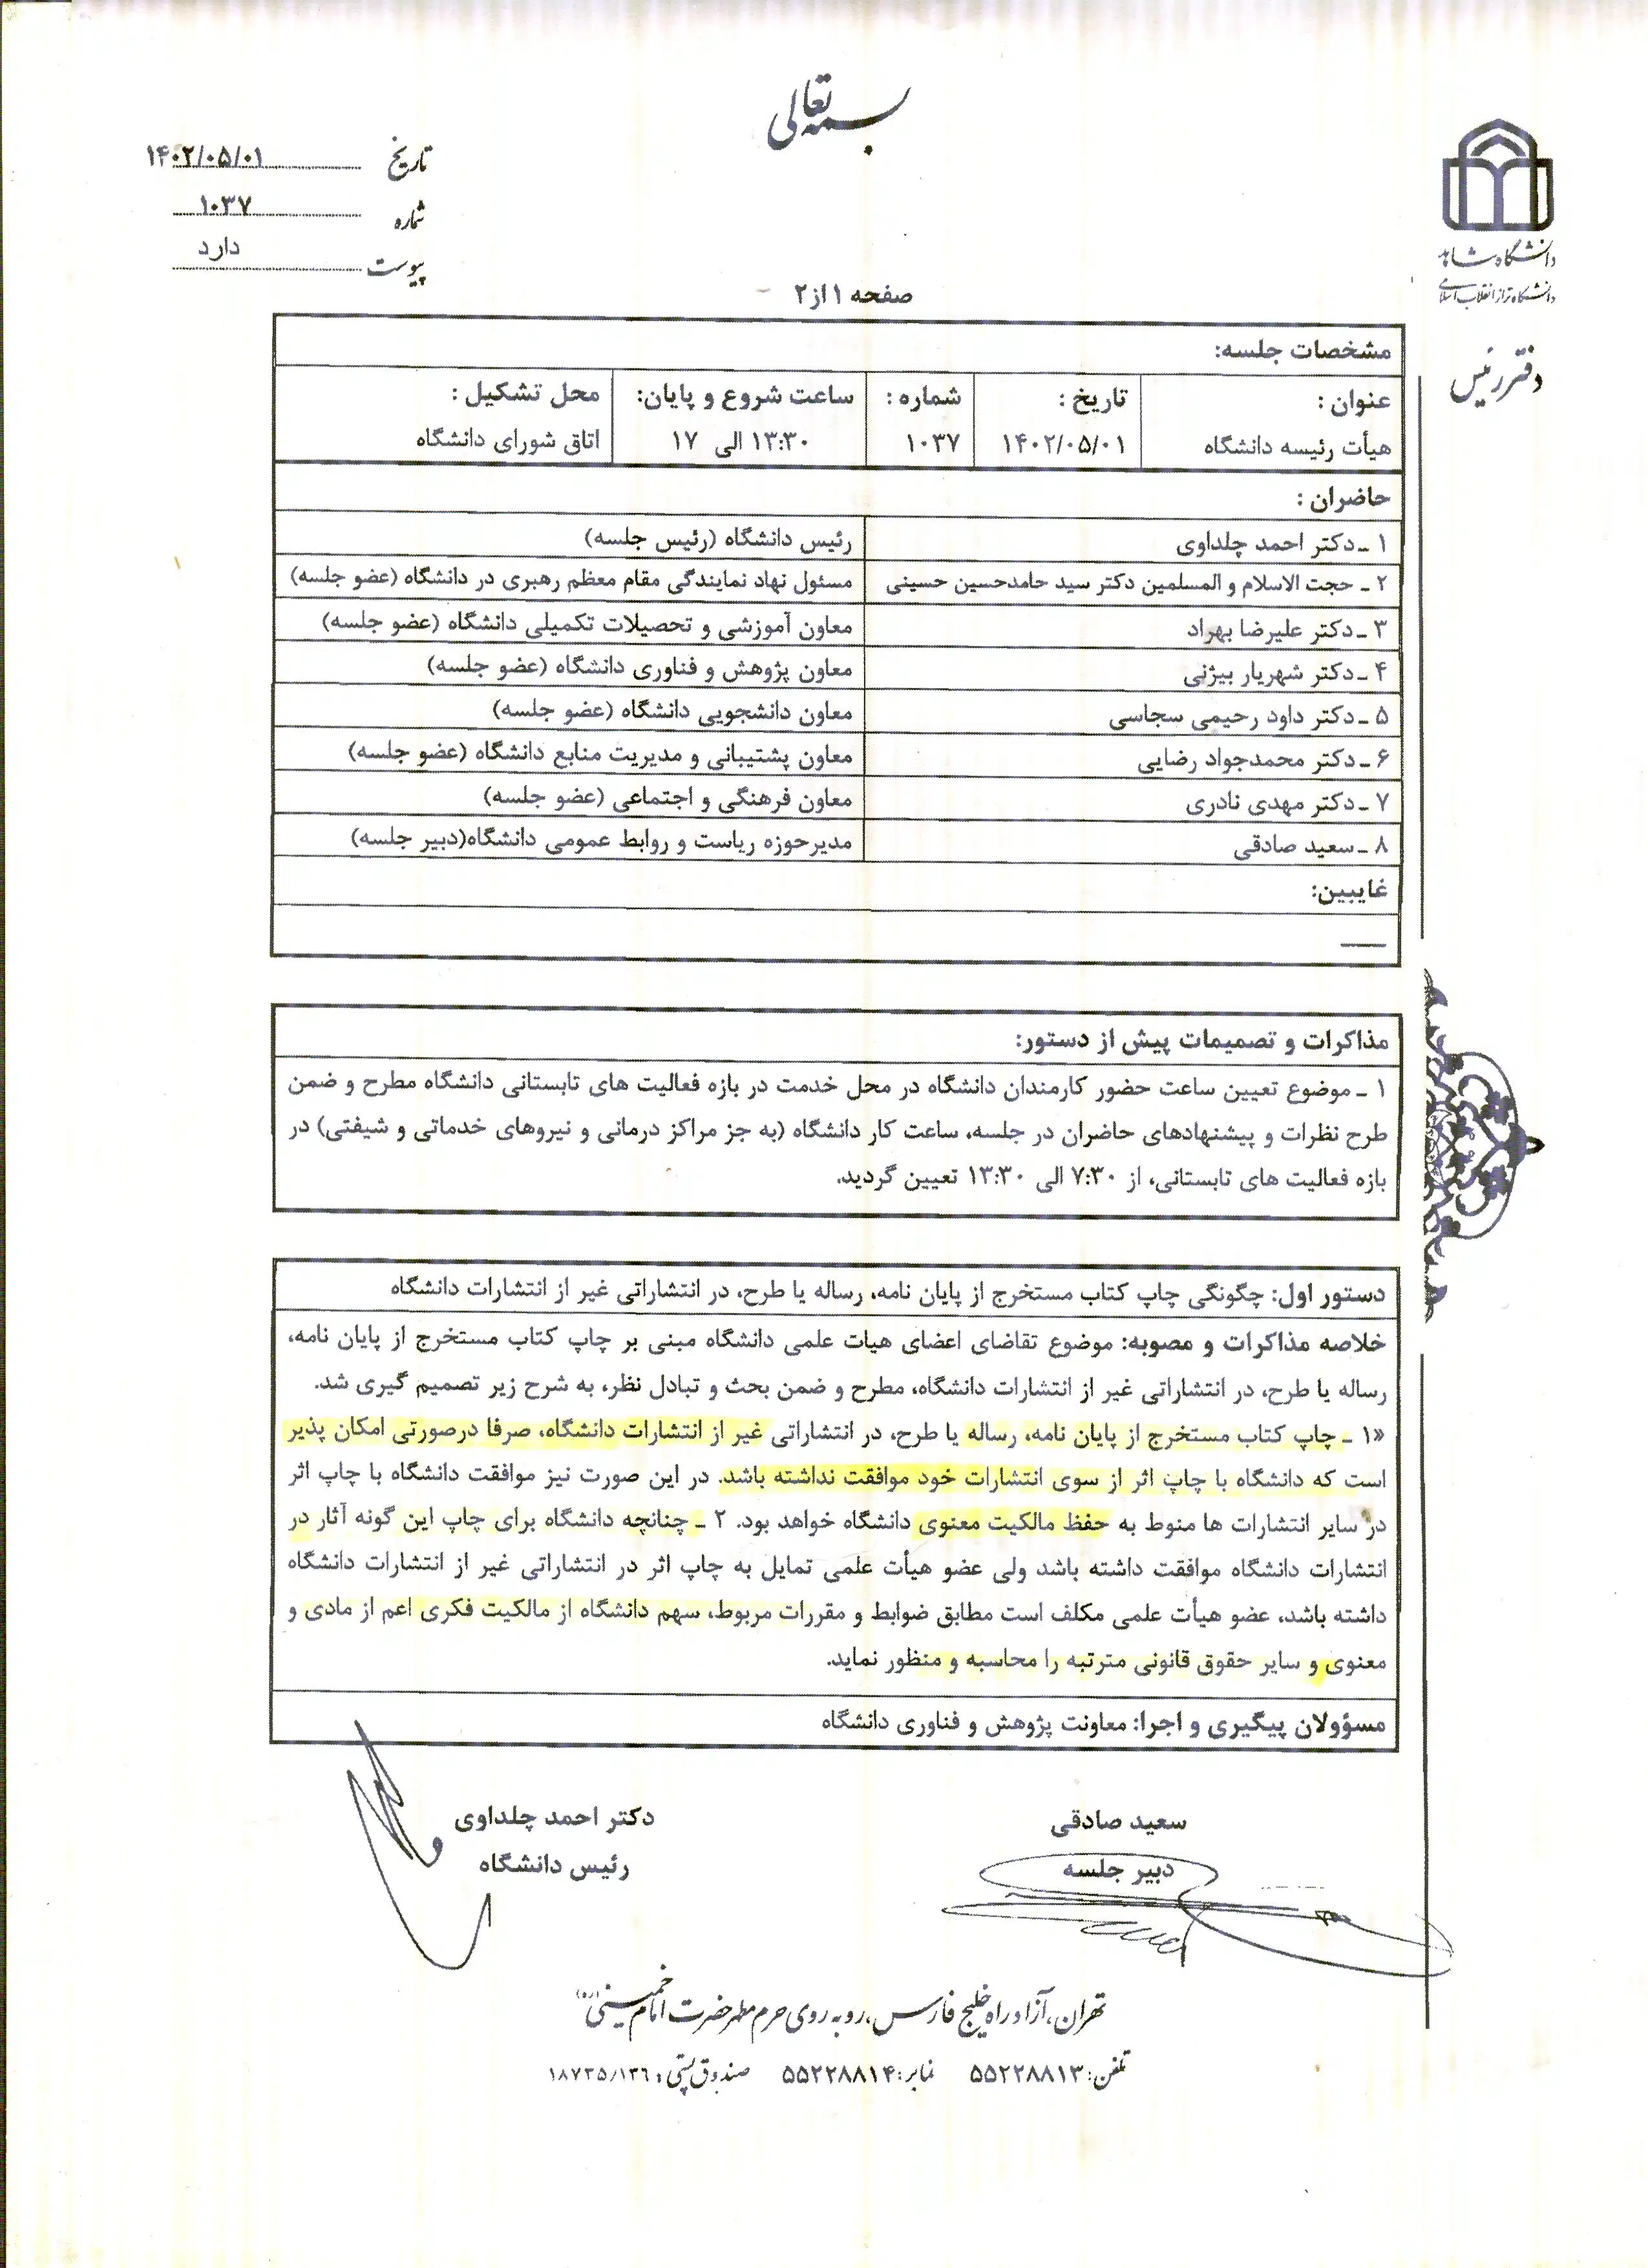 بسمه تعالی
تاریخ ۱۴۰۲/۰۵/۰۱
شماره ۱۰۳۷
پیوست دارد
دانشگاه شاهد
دانشگاه تراز انقلاب اسلامی
دفتر رئیس
صفحه ۱ از ۲
مشخصات جلسه:
عنوان : تاریخ : شماره : ساعت شروع و پایان: محل تشکیل :
هیأت رئیسه دانشگاه ۱۴۰۲/۰۵/۰۱ ۱۰۳۷ ۱۳:۳۰ الی ۱۷ اتاق شورای دانشگاه
حاضران :
۱ ـ دکتر احمد چلداوی رئیس دانشگاه (رئیس جلسه)
۲ ـ حجت الاسلام و المسلمین دکتر سید حامدحسین حسینی مسئول نهاد نمایندگی مقام معظم رهبری در دانشگاه (عضو جلسه)
۳ ـ دکتر علیرضا بهراد معاون آموزشی و تحصیلات تکمیلی دانشگاه (عضو جلسه)
۴ ـ دکتر شهریار بیژنی معاون پژوهش و فناوری دانشگاه (عضو جلسه)
۵ ـ دکتر داود رحیمی سجاسی معاون دانشجویی دانشگاه (عضو جلسه)
۶ ـ دکتر محمدجواد رضایی معاون پشتیبانی و مدیریت منابع دانشگاه (عضو جلسه)
۷ ـ دکتر مهدی نادری معاون فرهنگی و اجتماعی (عضو جلسه)
۸ ـ سعید صادقی مدیرحوزه ریاست و روابط عمومی دانشگاه(دبیر جلسه)
غایبین:
ــــ
مذاکرات و تصمیمات پیش از دستور:
۱ ـ موضوع تعیین ساعت حضور کارمندان دانشگاه در محل خدمت در بازه فعالیت های تابستانی دانشگاه مطرح و ضمن
طرح نظرات و پیشنهادهای حاضران در جلسه، ساعت کار دانشگاه (به جز مراکز درمانی و نیروهای خدماتی و شیفتی) در
بازه فعالیت های تابستانی، از ۷:۳۰ الی ۱۳:۳۰ تعیین گردید.
دستور اول: چگونگی چاپ کتاب مستخرج از پایان نامه، رساله یا طرح، در انتشاراتی غیر از انتشارات دانشگاه
خلاصه مذاکرات و مصوبه: موضوع تقاضای اعضای هیات علمی دانشگاه مبنی بر چاپ کتاب مستخرج از پایان نامه،
رساله یا طرح، در انتشاراتی غیر از انتشارات دانشگاه، مطرح و ضمن بحث و تبادل نظر، به شرح زیر تصمیم گیری شد.
«۱ ـ چاپ کتاب مستخرج از پایان نامه، رساله یا طرح، در انتشاراتی غیر از انتشارات دانشگاه، صرفا درصورتی امکان پذیر
است که دانشگاه با چاپ اثر از سوی انتشارات خود موافقت نداشته باشد. در این صورت نیز موافقت دانشگاه با چاپ اثر
در سایر انتشارات ها منوط به حفظ مالکیت معنوی دانشگاه خواهد بود. ۲ ـ چنانچه دانشگاه برای چاپ این گونه آثار در
انتشارات دانشگاه موافقت داشته باشد ولی عضو هیأت علمی تمایل به چاپ اثر در انتشاراتی غیر از انتشارات دانشگاه
داشته باشد، عضو هیأت علمی مکلف است مطابق ضوابط و مقررات مربوط، سهم دانشگاه از مالکیت فکری اعم از مادی و
معنوی و سایر حقوق قانونی مترتبه را محاسبه و منظور نماید.
مسؤولان پیگیری و اجرا: معاونت پژوهش و فناوری دانشگاه
سعید صادقی دکتر احمد چلداوی
دبیر جلسه رئیس دانشگاه
تهران، آزادراه خلیج فارس، روبه روی حرم مطهر حضرت امام خمینی(ره)
تلفن: ۵۵۲۲۸۸۱۳ نمابر: ۵۵۲۲۸۸۱۴ صندوق پستی: ۱۸۷۳۵/۱۳۶